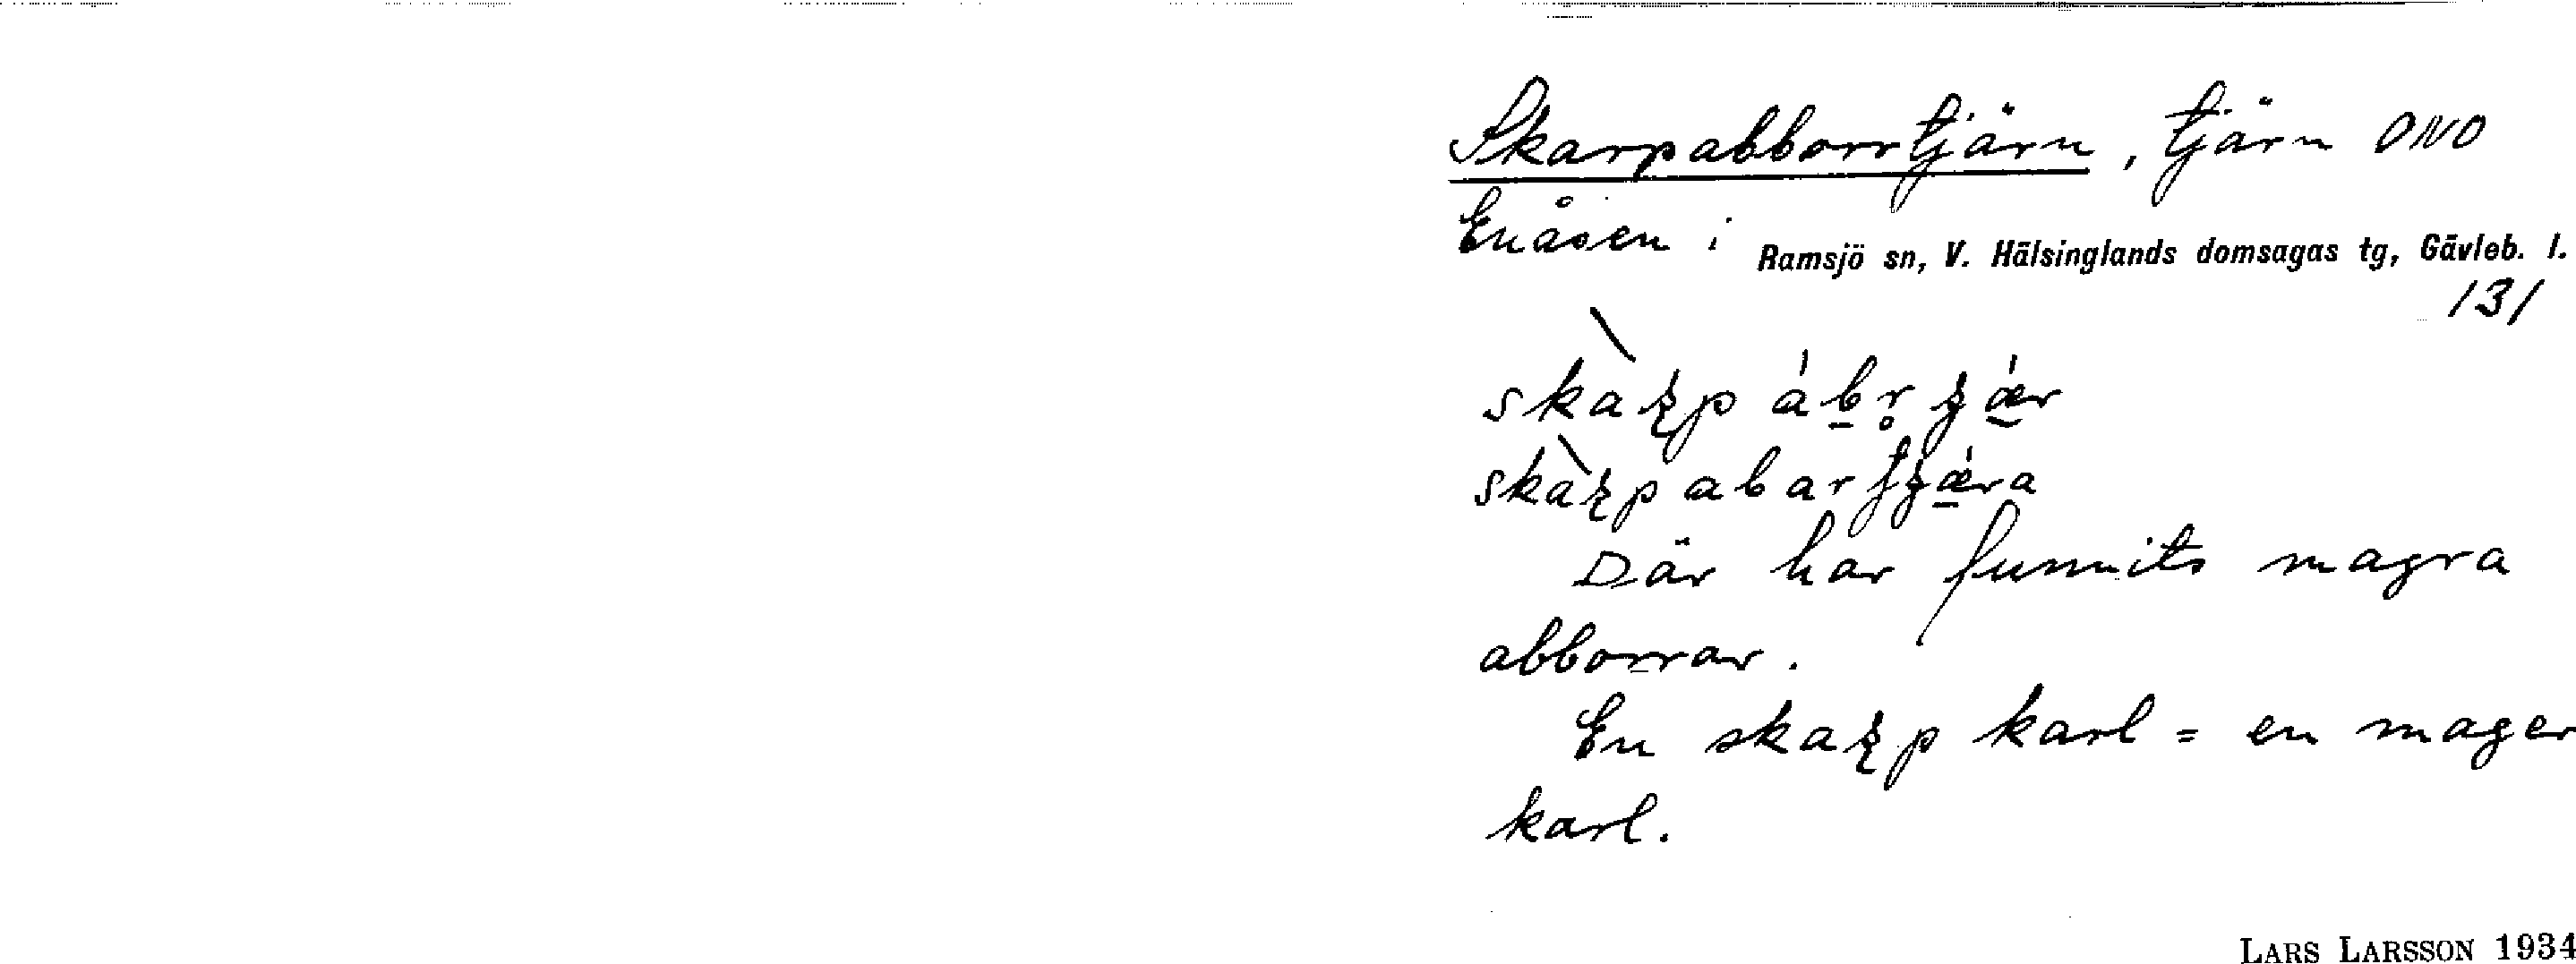 Skarpabborrtjärn, tjärn ONO
Enåsen i Ramsjö sn, V. Hälsinglands domsagas tg, Gävleb. l.
131
Där har funnits magra
abborrar.
En skaꝛp karl = en mager
karl.
LARS LARSSON 1934